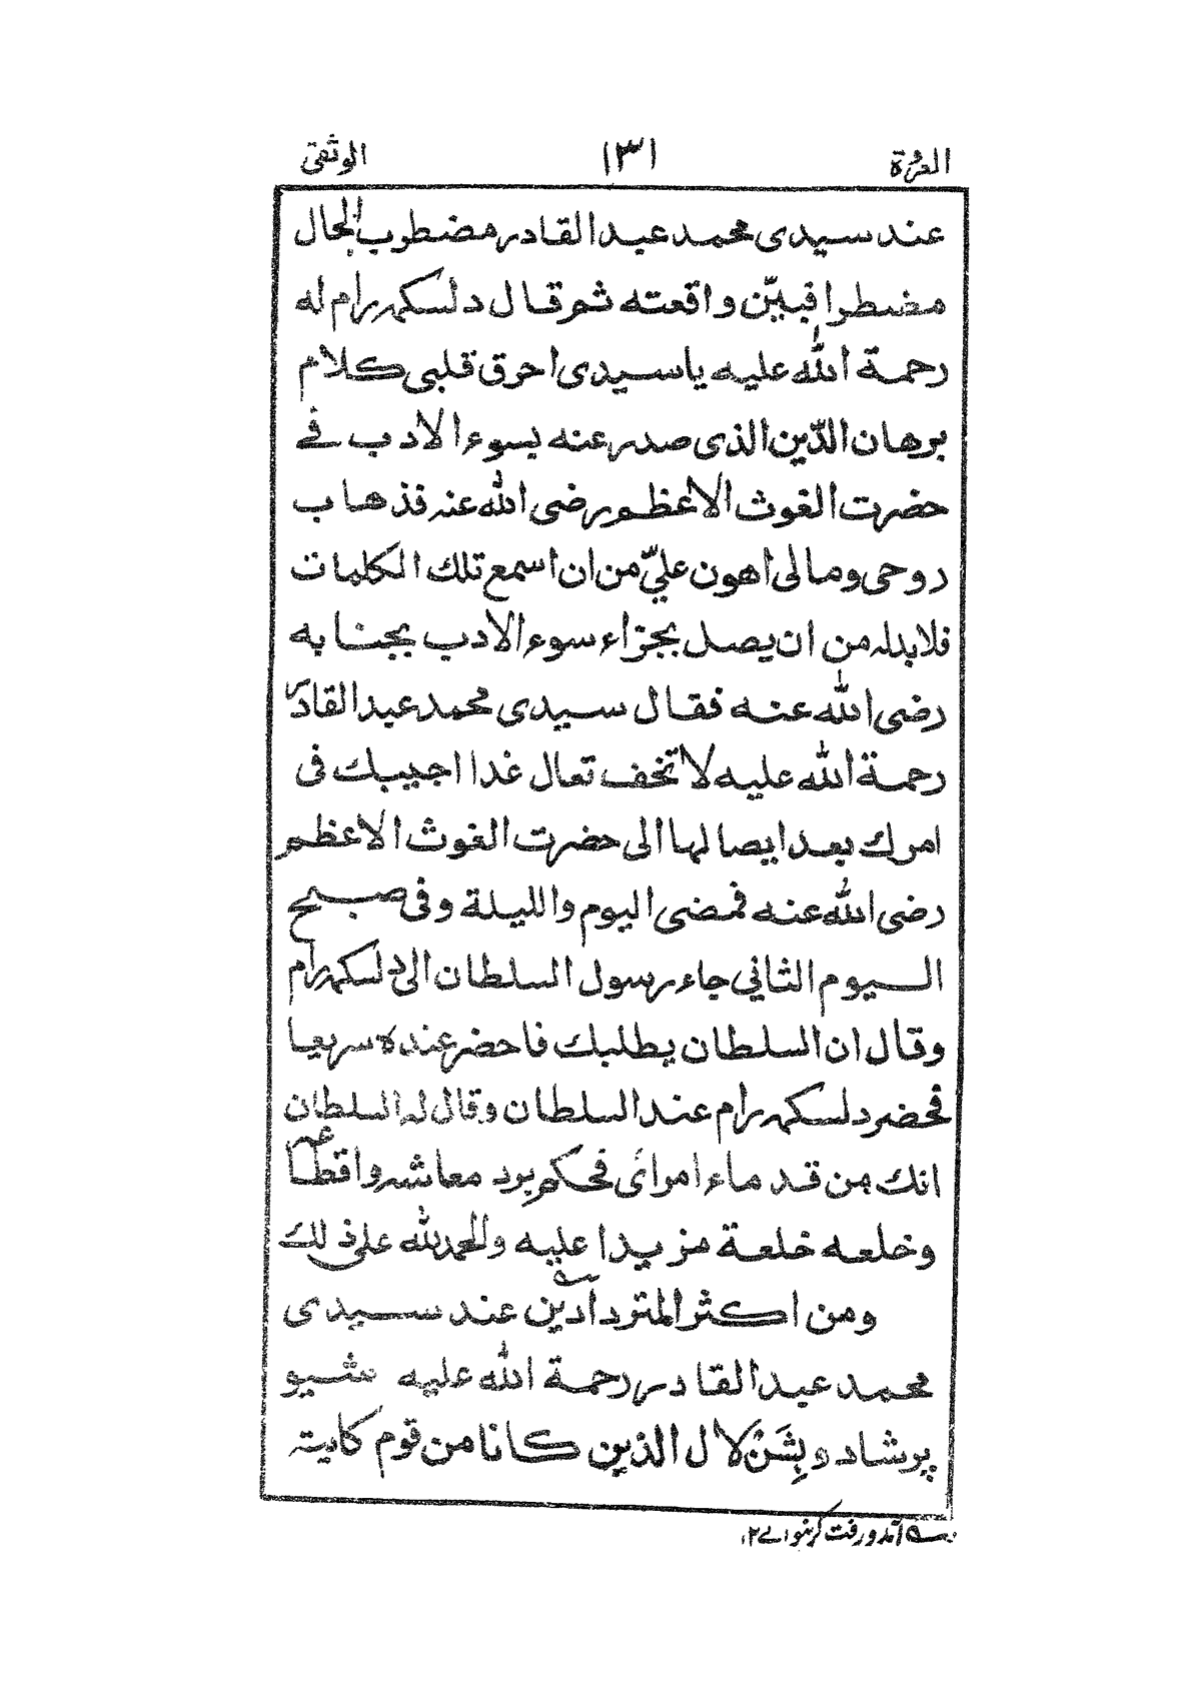 العروة ١٣١ الوثقى
عند سيدى محمد عبد القادر مضطرب الحال
مضطرا فبيّن واقعته ثم قال دلسكهرام له
رحمة الله عليه ياسيدى احرق قلبى كلام
برهان الدّين الذى صدر عنه بسوء الادب فے
حضرت الغوث الاعظم رضى الله عنه فذهاب
روحى ومالى اهون علىّ من ان اسمع تلك الكلمات
فلابدله من ان يصل بجزاء سوء الادب بجنابه
رضى الله عنه فقال سيدى محمد عبد القادر
رحمة الله عليه لا تخف تعال غدا اجيبك فى
امرك بعد ايصالها الى حضرت الغوث الاعظم
رضى الله عنه فمضى اليوم والليلة وفى صبح
اليوم الثانى جاء رسول السلطان الى دلسكهرام
وقال ان السلطان يطلبك فاحضر عنده سريعا
فحضر دلسكهرام عند السلطان وقال له السلطان
انك من قدماء امرائى فحكم برد معاشه واقطاعه
وخلعه خلعة مزيدا عليه والحمد لله على ذلك
ومن اكثر المتردادين عند سيدى
محمد عبد القادر رحمة الله عليه شيو
پرشاد وبِشَنْ لال الذين كانا من قوم كايته
سه آمد ورفت كرنيوالے ١٢